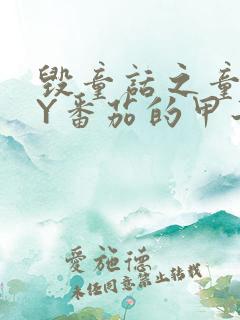 毀童話之童
Y番茄的甲
愛施德
未经同意禁止转载